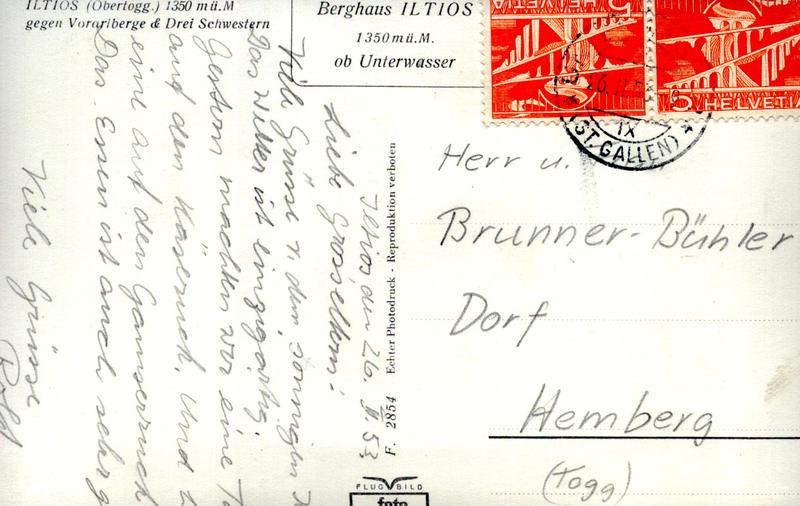 ILTIOS (Obertogg.) 1350 mü.M
gegen Vorarlberge & Drei Schwestern
Berghaus ILTIOS
1350 m ü. M.
ob Unterwasser
HELVETIA
5
5 HELVETIA
26. II. 53
IX
(ST. GALLEN)
Iltios den 26. II. 53
Liebe Grosseltern!
Viele Grüsse v. dem sonnigen
Das Wetter ist einzigartig.
Gestern machten wir eine
auf den Käserruck. Und
eine auf den Gamserruck
Das Essen ist auch sehr g
Viele Grüsse
Rolf
F. 2854 Echter Photodruck - Reproduktion verboten
FLUGBILD
foto
Herr u.
Brunner-Bühler
Dorf
Hemberg
(Togg)